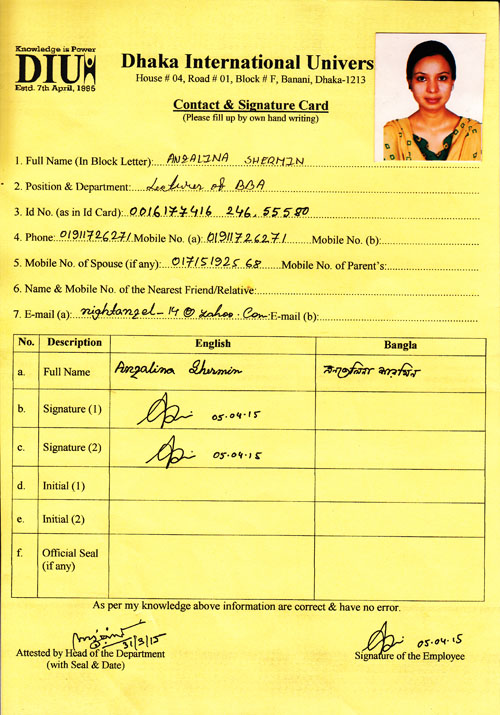 Knowledge is Power
DIU
Estd. 7th April, 1995
Dhaka International Univers
House # 04, Road # 01, Block # F, Banani, Dhaka-1213
Contact & Signature Card
(Please fill up by own hand writing)
1. Full Name (In Block Letter): ANGALINA SHERMIN
2. Position & Department: Lecturer of BBA
3. Id No. (as in Id Card): 0016177416 246, 55580
4. Phone: 01911726271 Mobile No. (a): 01911726271 Mobile No. (b):
5. Mobile No. of Spouse (if any): 01715192568 Mobile No. of Parent's:
6. Name & Mobile No. of the Nearest Friend/Relative:
7. E-mail (a): nightangel_14@yahoo.com E-mail (b):
No. Description English Bangla
a. Full Name Angalina Shermin
b. Signature (1) 05.04.15
c. Signature (2) 05.04.15
d. Initial (1)
e. Initial (2)
f. Official Seal
(if any)
As per my knowledge above information are correct & have no error.
31/3/15 05.04.15
Attested by Head of the Department Signature of the Employee
(with Seal & Date)